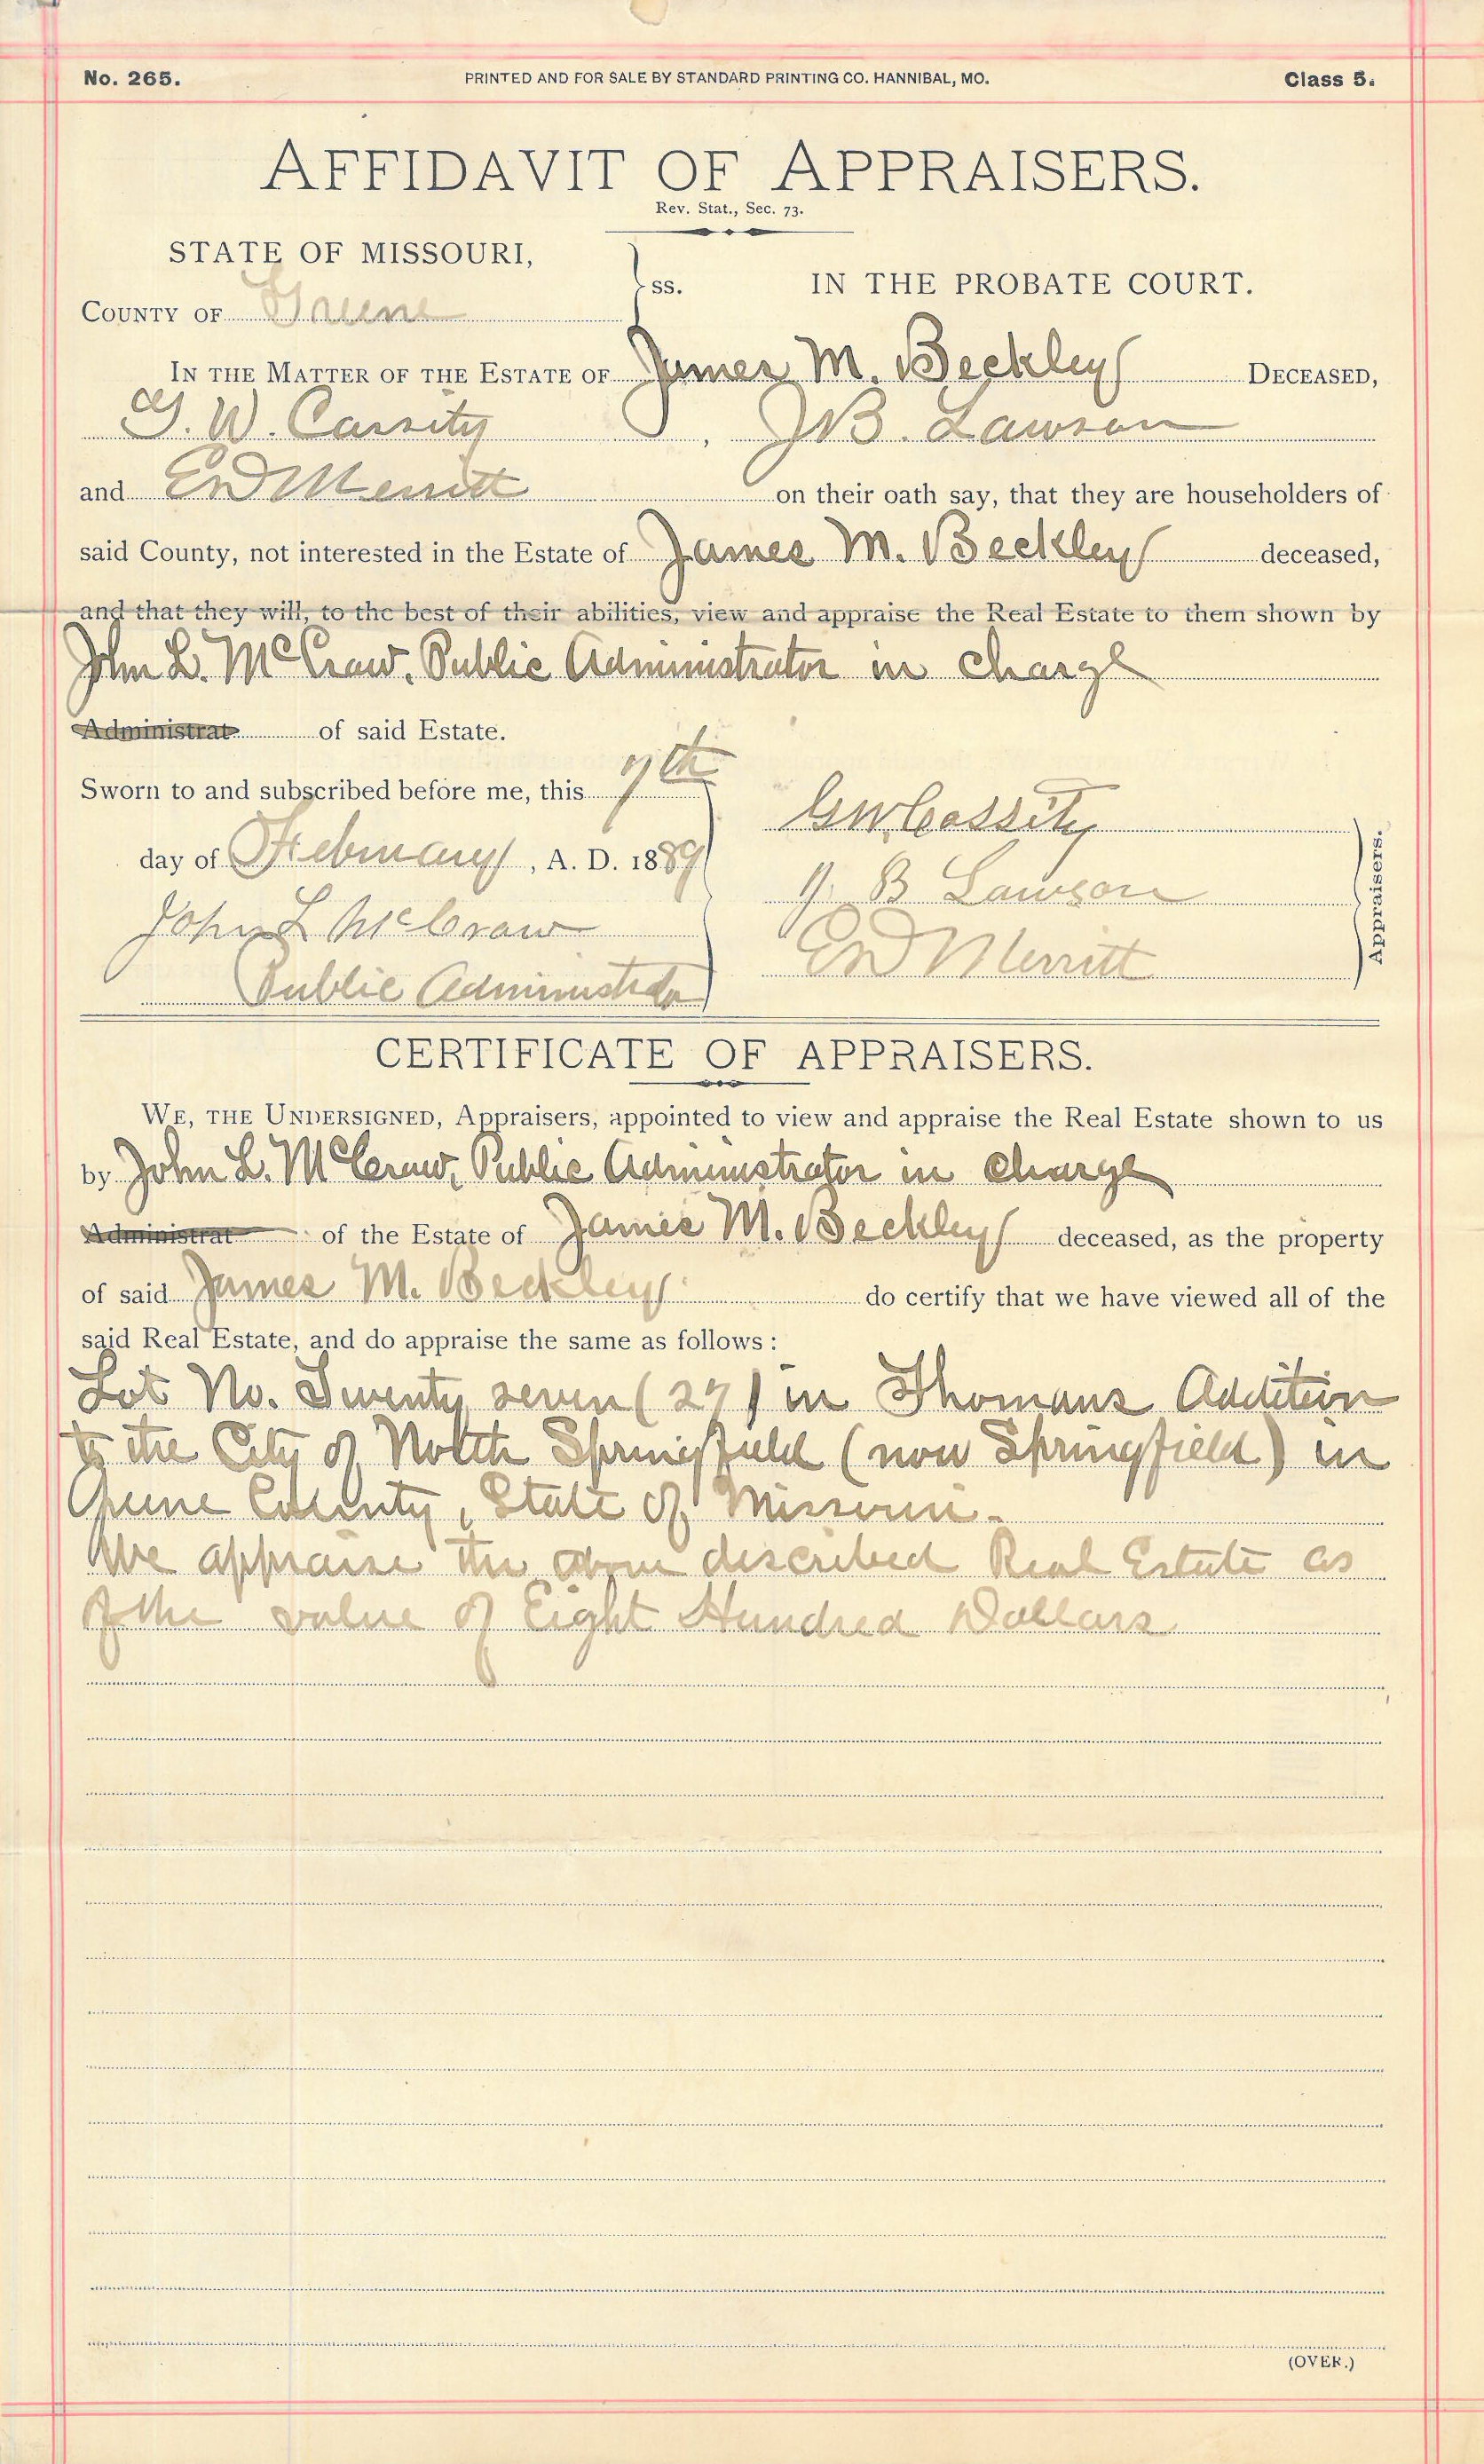 No. 265. PRINTED AND FOR SALE BY STANDARD PRINTING CO. HANNIBAL, MO. Class 5.
AFFIDAVIT OF APPRAISERS.
Rev. Stat., Sec. 73.
STATE OF MISSOURI,
COUNTY OF Greene
ss. IN THE PROBATE COURT.
IN THE MATTER OF THE ESTATE OF James M. Beckley DECEASED,
G. W. Cassity, J B. Lawson
and E D Merritt on their oath say, that they are householders of
said County, not interested in the Estate of James M. Beckley deceased,
and that they will, to the best of their abilities, view and appraise the Real Estate to them shown by
John L. McCraw, Public Administrator in charge
Administrat of said Estate.
Sworn to and subscribed before me, this 7th
day of February, A. D. 1889
John L McCraw
Public Administrator
G W Cassity
J. B Lawson
E D Merritt
Appraisers.
CERTIFICATE OF APPRAISERS.
WE, THE UNDERSIGNED, Appraisers, appointed to view and appraise the Real Estate shown to us
by John L. McCraw, Public Administrator in charge
Administrat of the Estate of James M. Beckley deceased, as the property
of said James M. Beckley do certify that we have viewed all of the
said Real Estate, and do appraise the same as follows:
Lot No. Twenty seven (27) in Thomans Addition
to the City of North Springfield (now Springfield) in
Greene County, State of Missouri.
We appraise the above described Real Estate as
of the value of Eight Hundred Dollars
(OVER.)